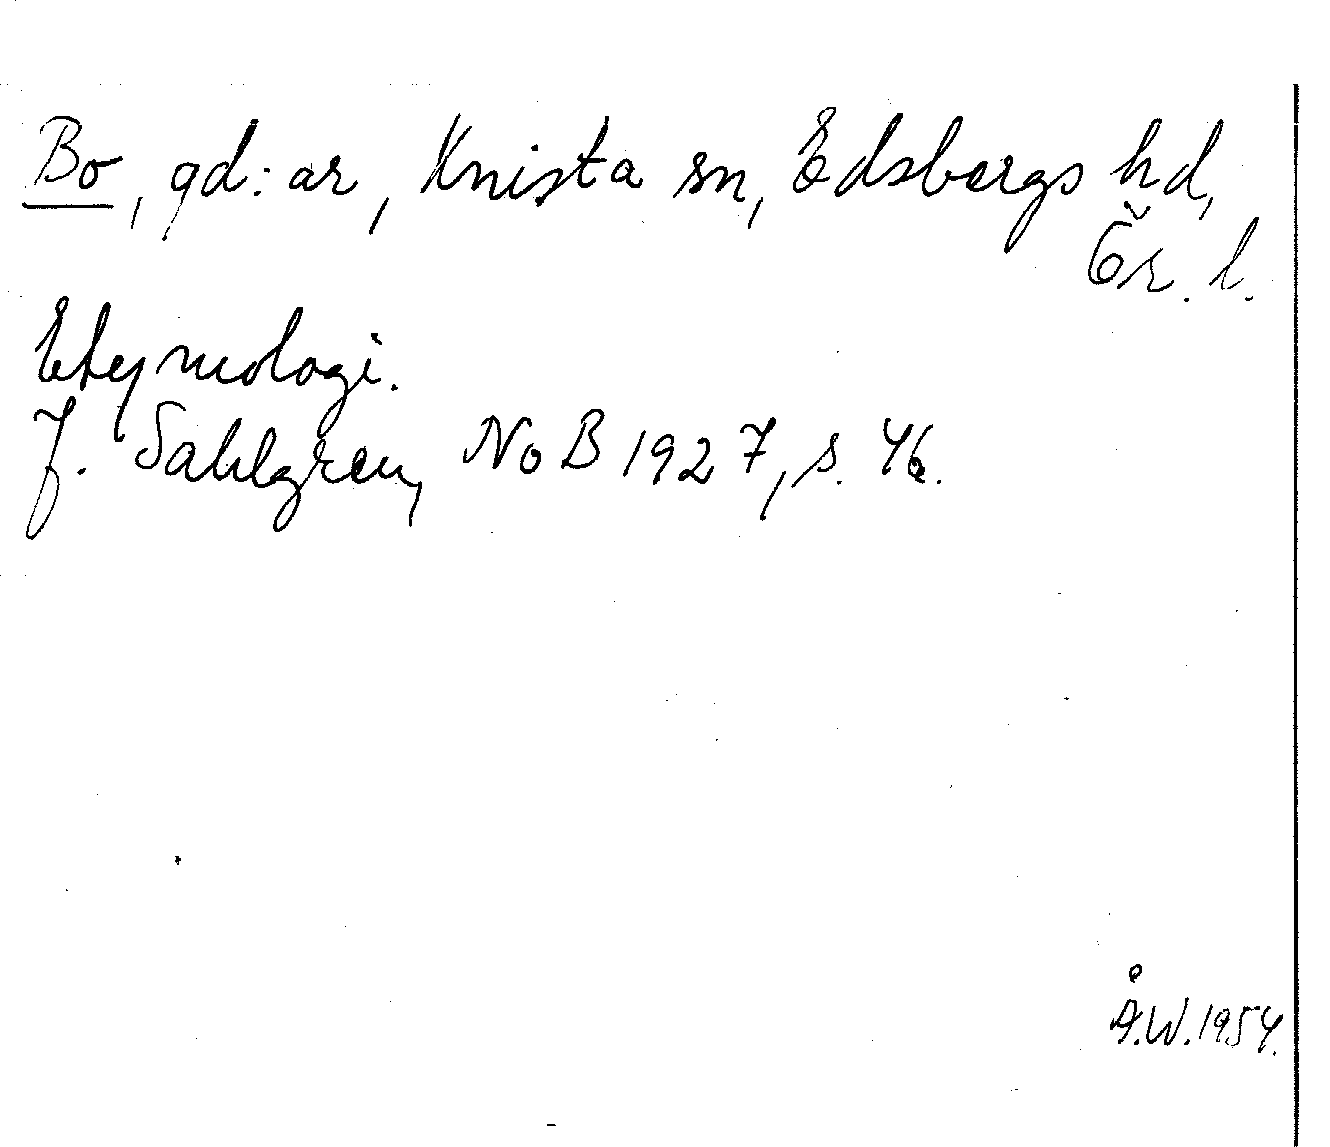 Bo, gd:ar, Knista sn, Edsbergs hd,
Ör. l.
Etymologi.
J. Sahlgren, NoB 1927, s. 46.
Å.W. 1954.